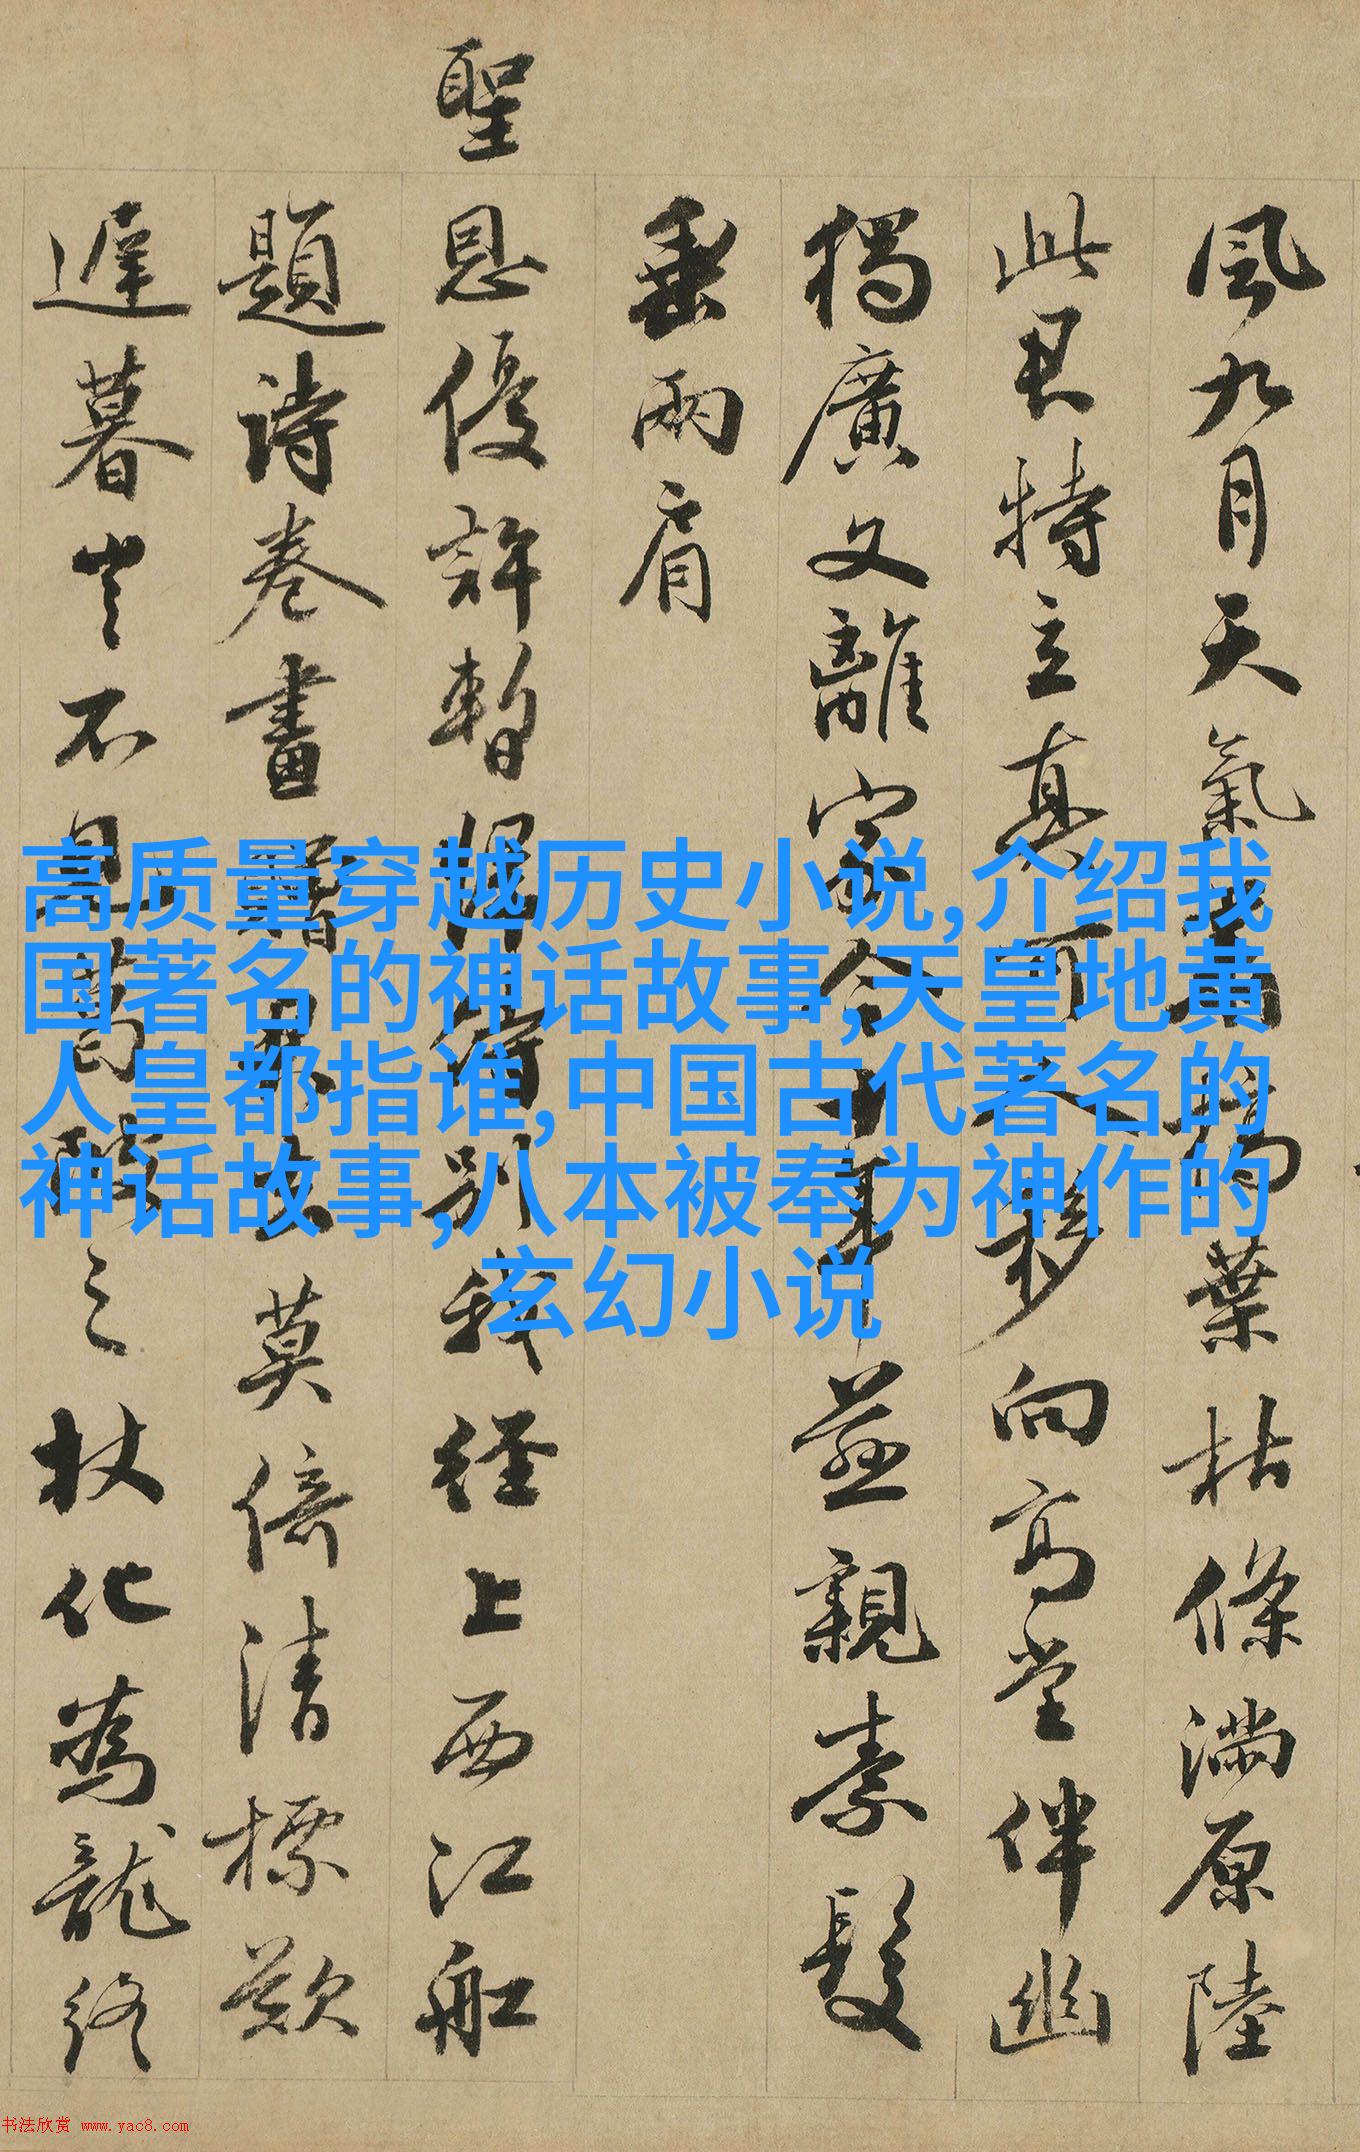 風九月天氣
葉枯條滿原陸
此君特立真可
移向高堂伴幽
獨廣文離家今
並親素髮
垂兩肩
聖
恩優許暫
別我經上西江船
題詩卷畫
莫倍清標歎
遲暮豈不見葛陂之杖化為龍終
高质量穿越历史小说,介绍我
国著名的神话故事,天皇地黄
人皇都指谁,中国古代著名的
神话故事,八本被奉为神作的
玄幻小说
书法欣赏 www.yac8.com